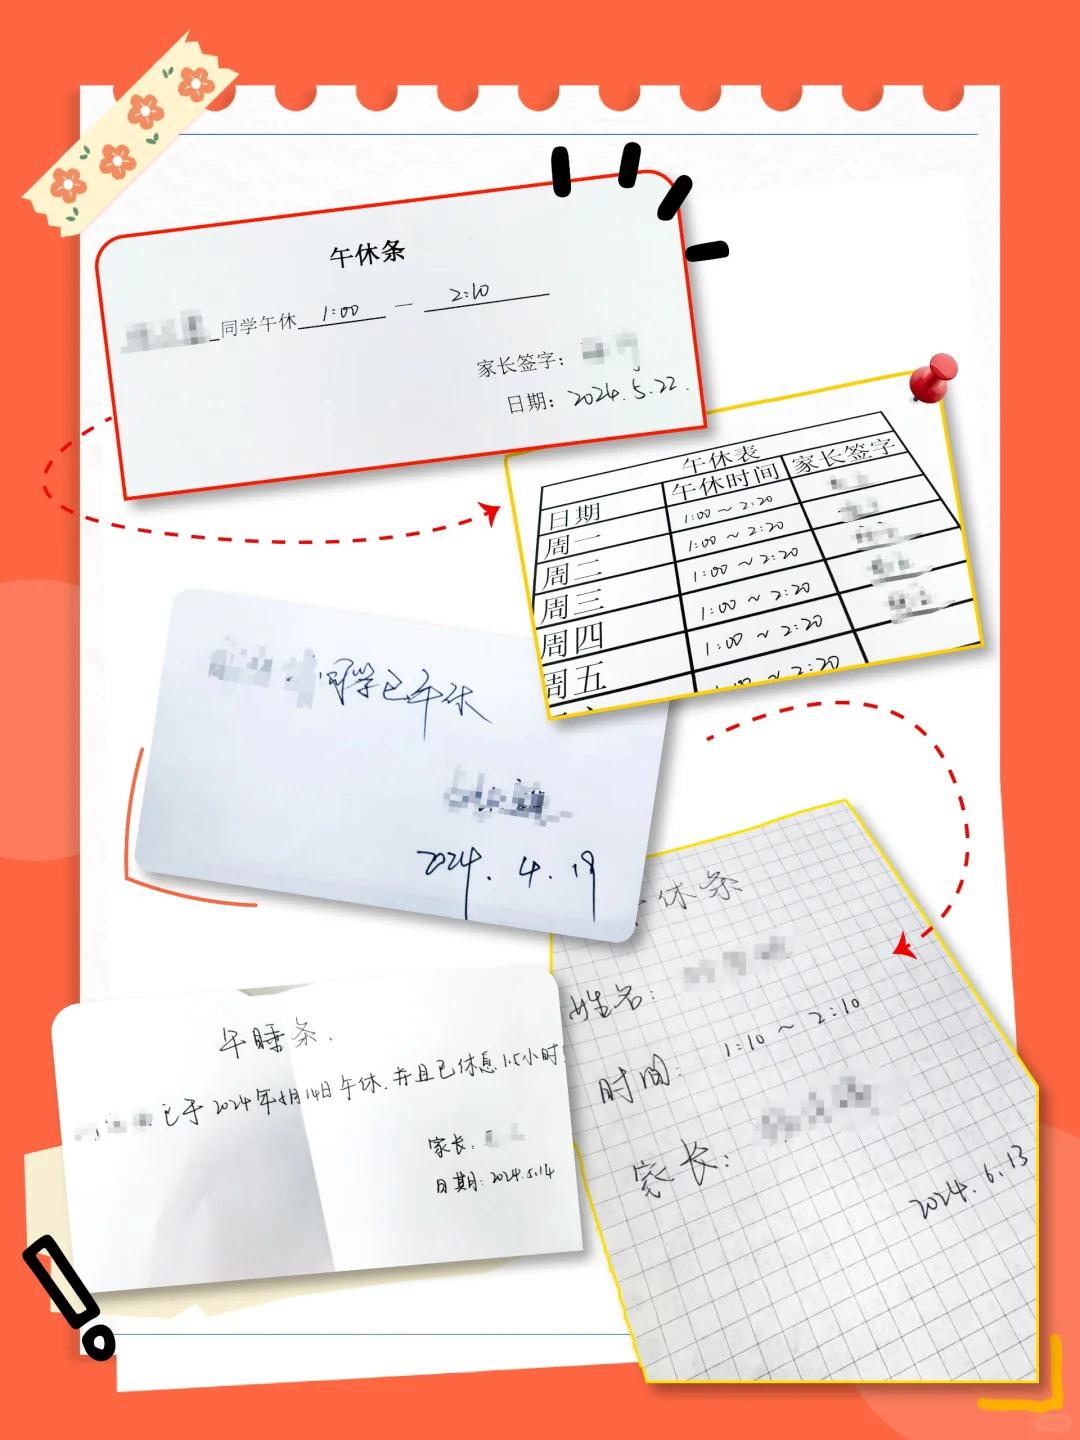 午休条
同学午休 1:00 — 2:10
家长签字:
日期: 2024.5.22.
午休表
日期 午休时间 家长签字
周一 1:00 ~ 2:20
周二 1:00 ~ 2:20
周三 1:00 ~ 2:20
周四 1:00 ~ 2:20
周五 1:00 ~ 2:20
1:00 ~ 2:20
同学已午休
2024.4.19
午睡条.
已于2024年5月14日午休.并且已休息1.5小时
家长:
日期:2024.5.14
休条
姓名:
时间: 1:10 ~ 2:10
家长:
2024.6.13